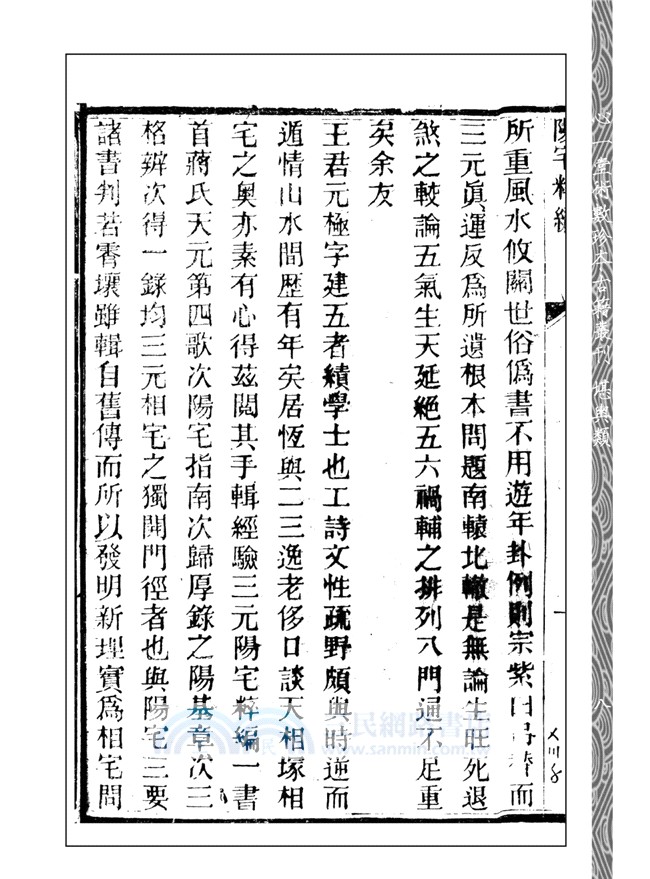 心一堂術數珍本古籍叢刊 堪輿類
八
陽宅粹編
一
所重風水攸關世俗僞書不用遊年卦例則宗紫白爲而
三元眞運反爲所遺根本問題南轅北轍是無論生旺死退
煞之較論五氣生天延絕五六禍輔之排列八門遍不足重
矣余友
王君元極字建五者績學士也工詩文性疏野頗與時逆而
遁情山水間歷有年矣居恆與二三逸老侈口談天相塚相
宅之奧亦素有心得茲閱其手輯經驗三元陽宅粹編一書
首蔣氏天元第四歌次陽宅指南次歸厚錄之陽基章次三
格辨次得一錄均三元相宅之獨開門徑者也與陽宅三要
諸書判若霄壤雖輯自舊傳而所以發明新理實爲相宅問
三民網路書店
www.sanmin.com.tw